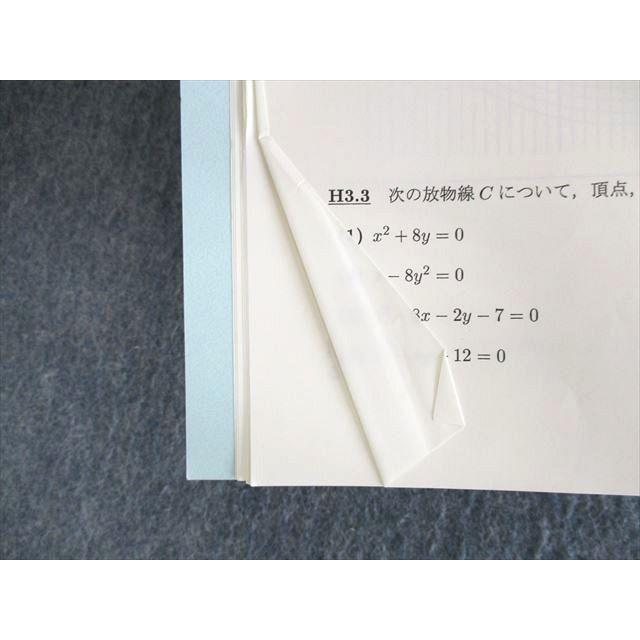 H3.3 次の放物線 C について，頂点，
1) x² + 8y = 0
− 8y² = 0
3x − 2y − 7 = 0
12 = 0